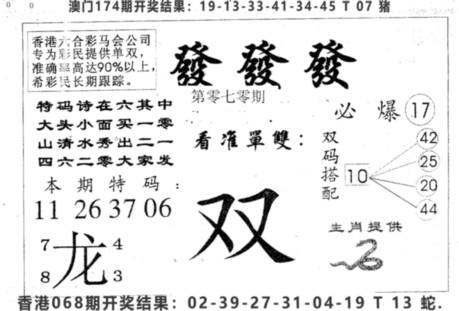 澳门174期开奖结果：19-13-33-41-34-45 T 07 猪
香港六合彩马会公司
专为彩民提供单双，
准确率高达90%以上，
希彩民长期跟踪。
發發發
第零七零期
特码诗在六其中
大头小面买一零
山清水秀出二一
四六二零大家发
看准單雙：
必爆17
双码搭配
10
42
25
20
44
本期特码：
11 26 37 06
双
生肖提供
龙
7
4
8
3
香港068期开奖结果：02-39-27-31-04-19 T 13 蛇.